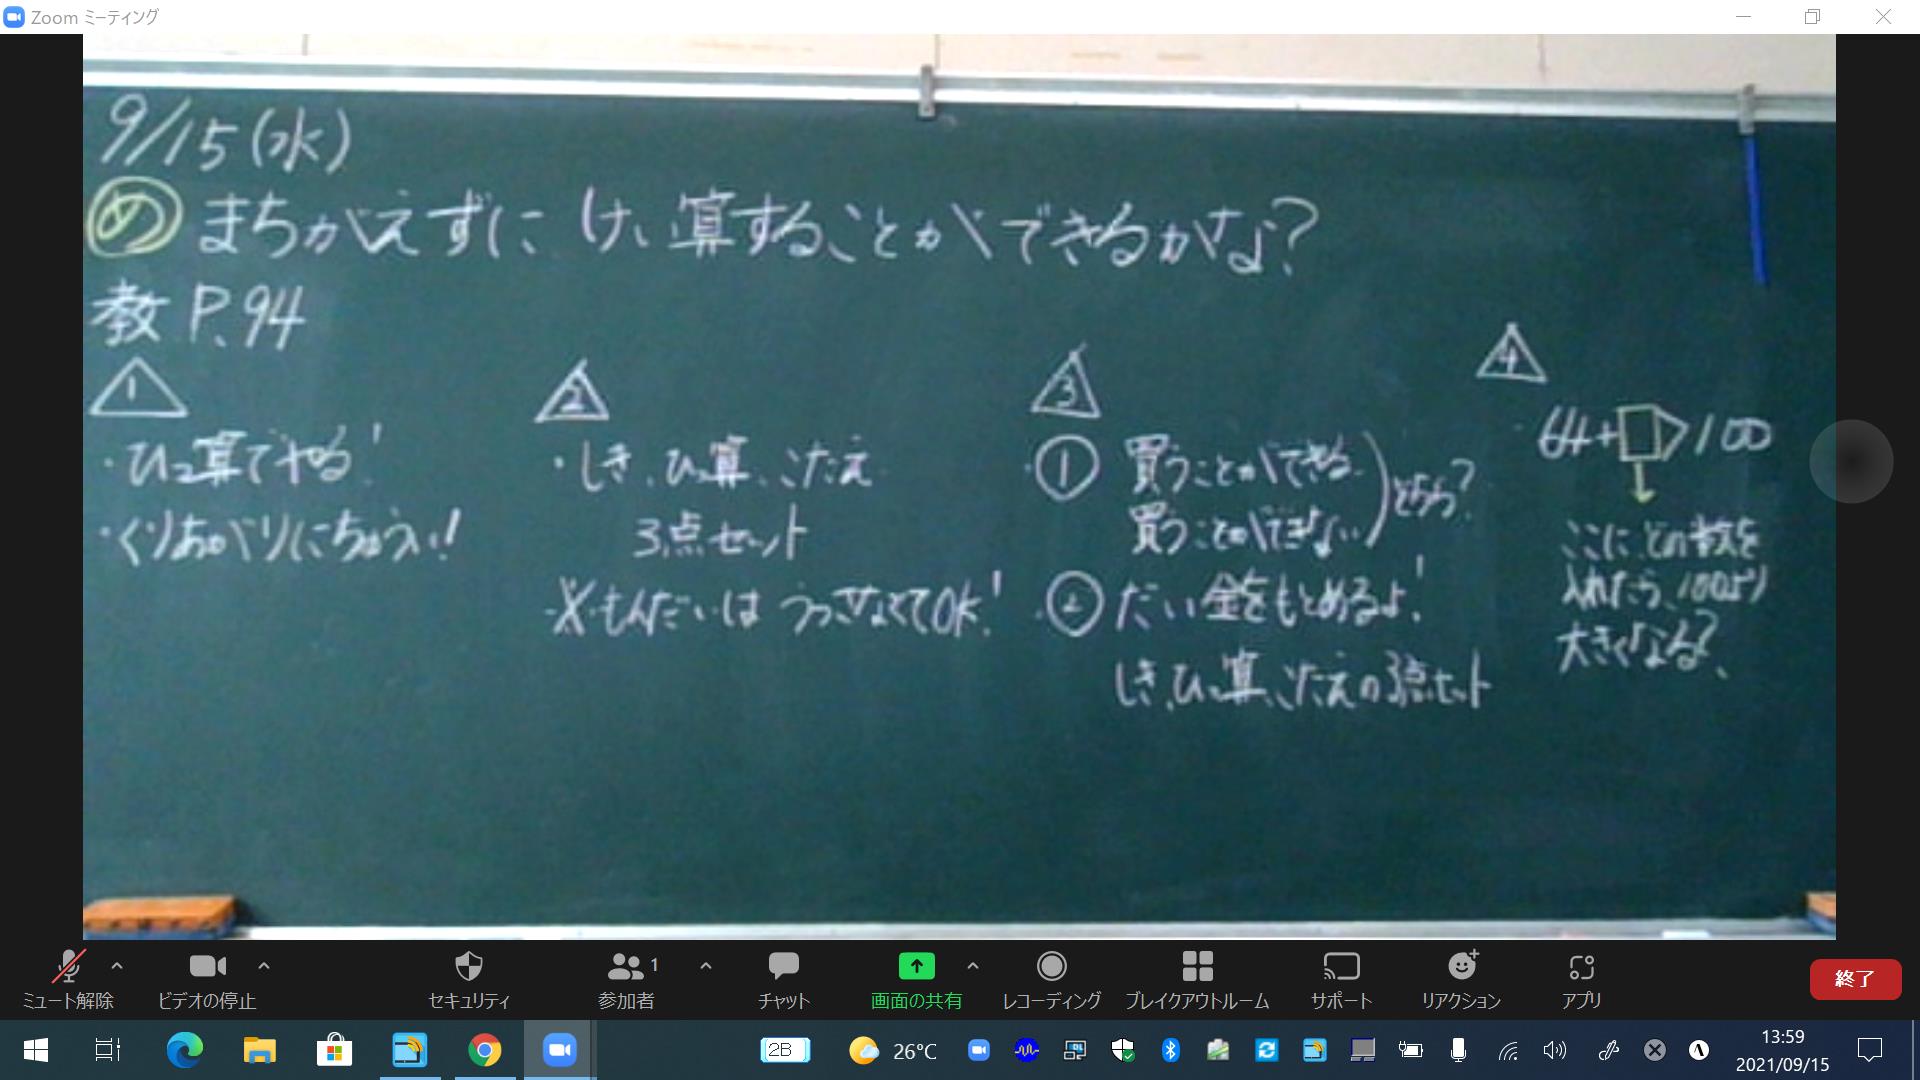 Zoom ミーティング
9/15(水)
め まちがえずに けい算することができるかな?
教 P.94
1
・ひっ算でやる!
・くり上がりにちゅうい!
2
・しき、ひっ算、こたえ
3点セット
※もんだいは うつさなくてOK!
3
① 買うことができる
買うことができない
どちら?
② だい金をもとめるよ!
しき、ひっ算、こたえの3点セット
4
64+□>100
↓
ここに、どの数を
入れたら、100より
大きくなる?
ミュート解除
ビデオの停止
セキュリティ
参加者 1
チャット
画面の共有
レコーディング
ブレイクアウトルーム
サポート
リアクション
アプリ
終了
2B
26°C
13:59
2021/09/15